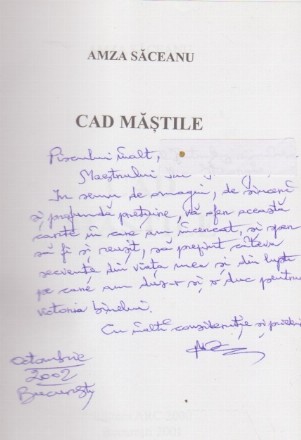 AMZA SĂCEANU
CAD MĂȘTILE
Piscului înalt,
Maestrului
In semn de omagiu, de sinceră
și profundă prețuire, vă ofer această
carte în care am încercat, și sper
să fi și reușit, să prezint câteva
secvențe din viața mea și din lupta
pe care am dus-o și o duc pentru
victoria binelui.
Cu înaltă considerație și prețuire
octombrie
2002
București